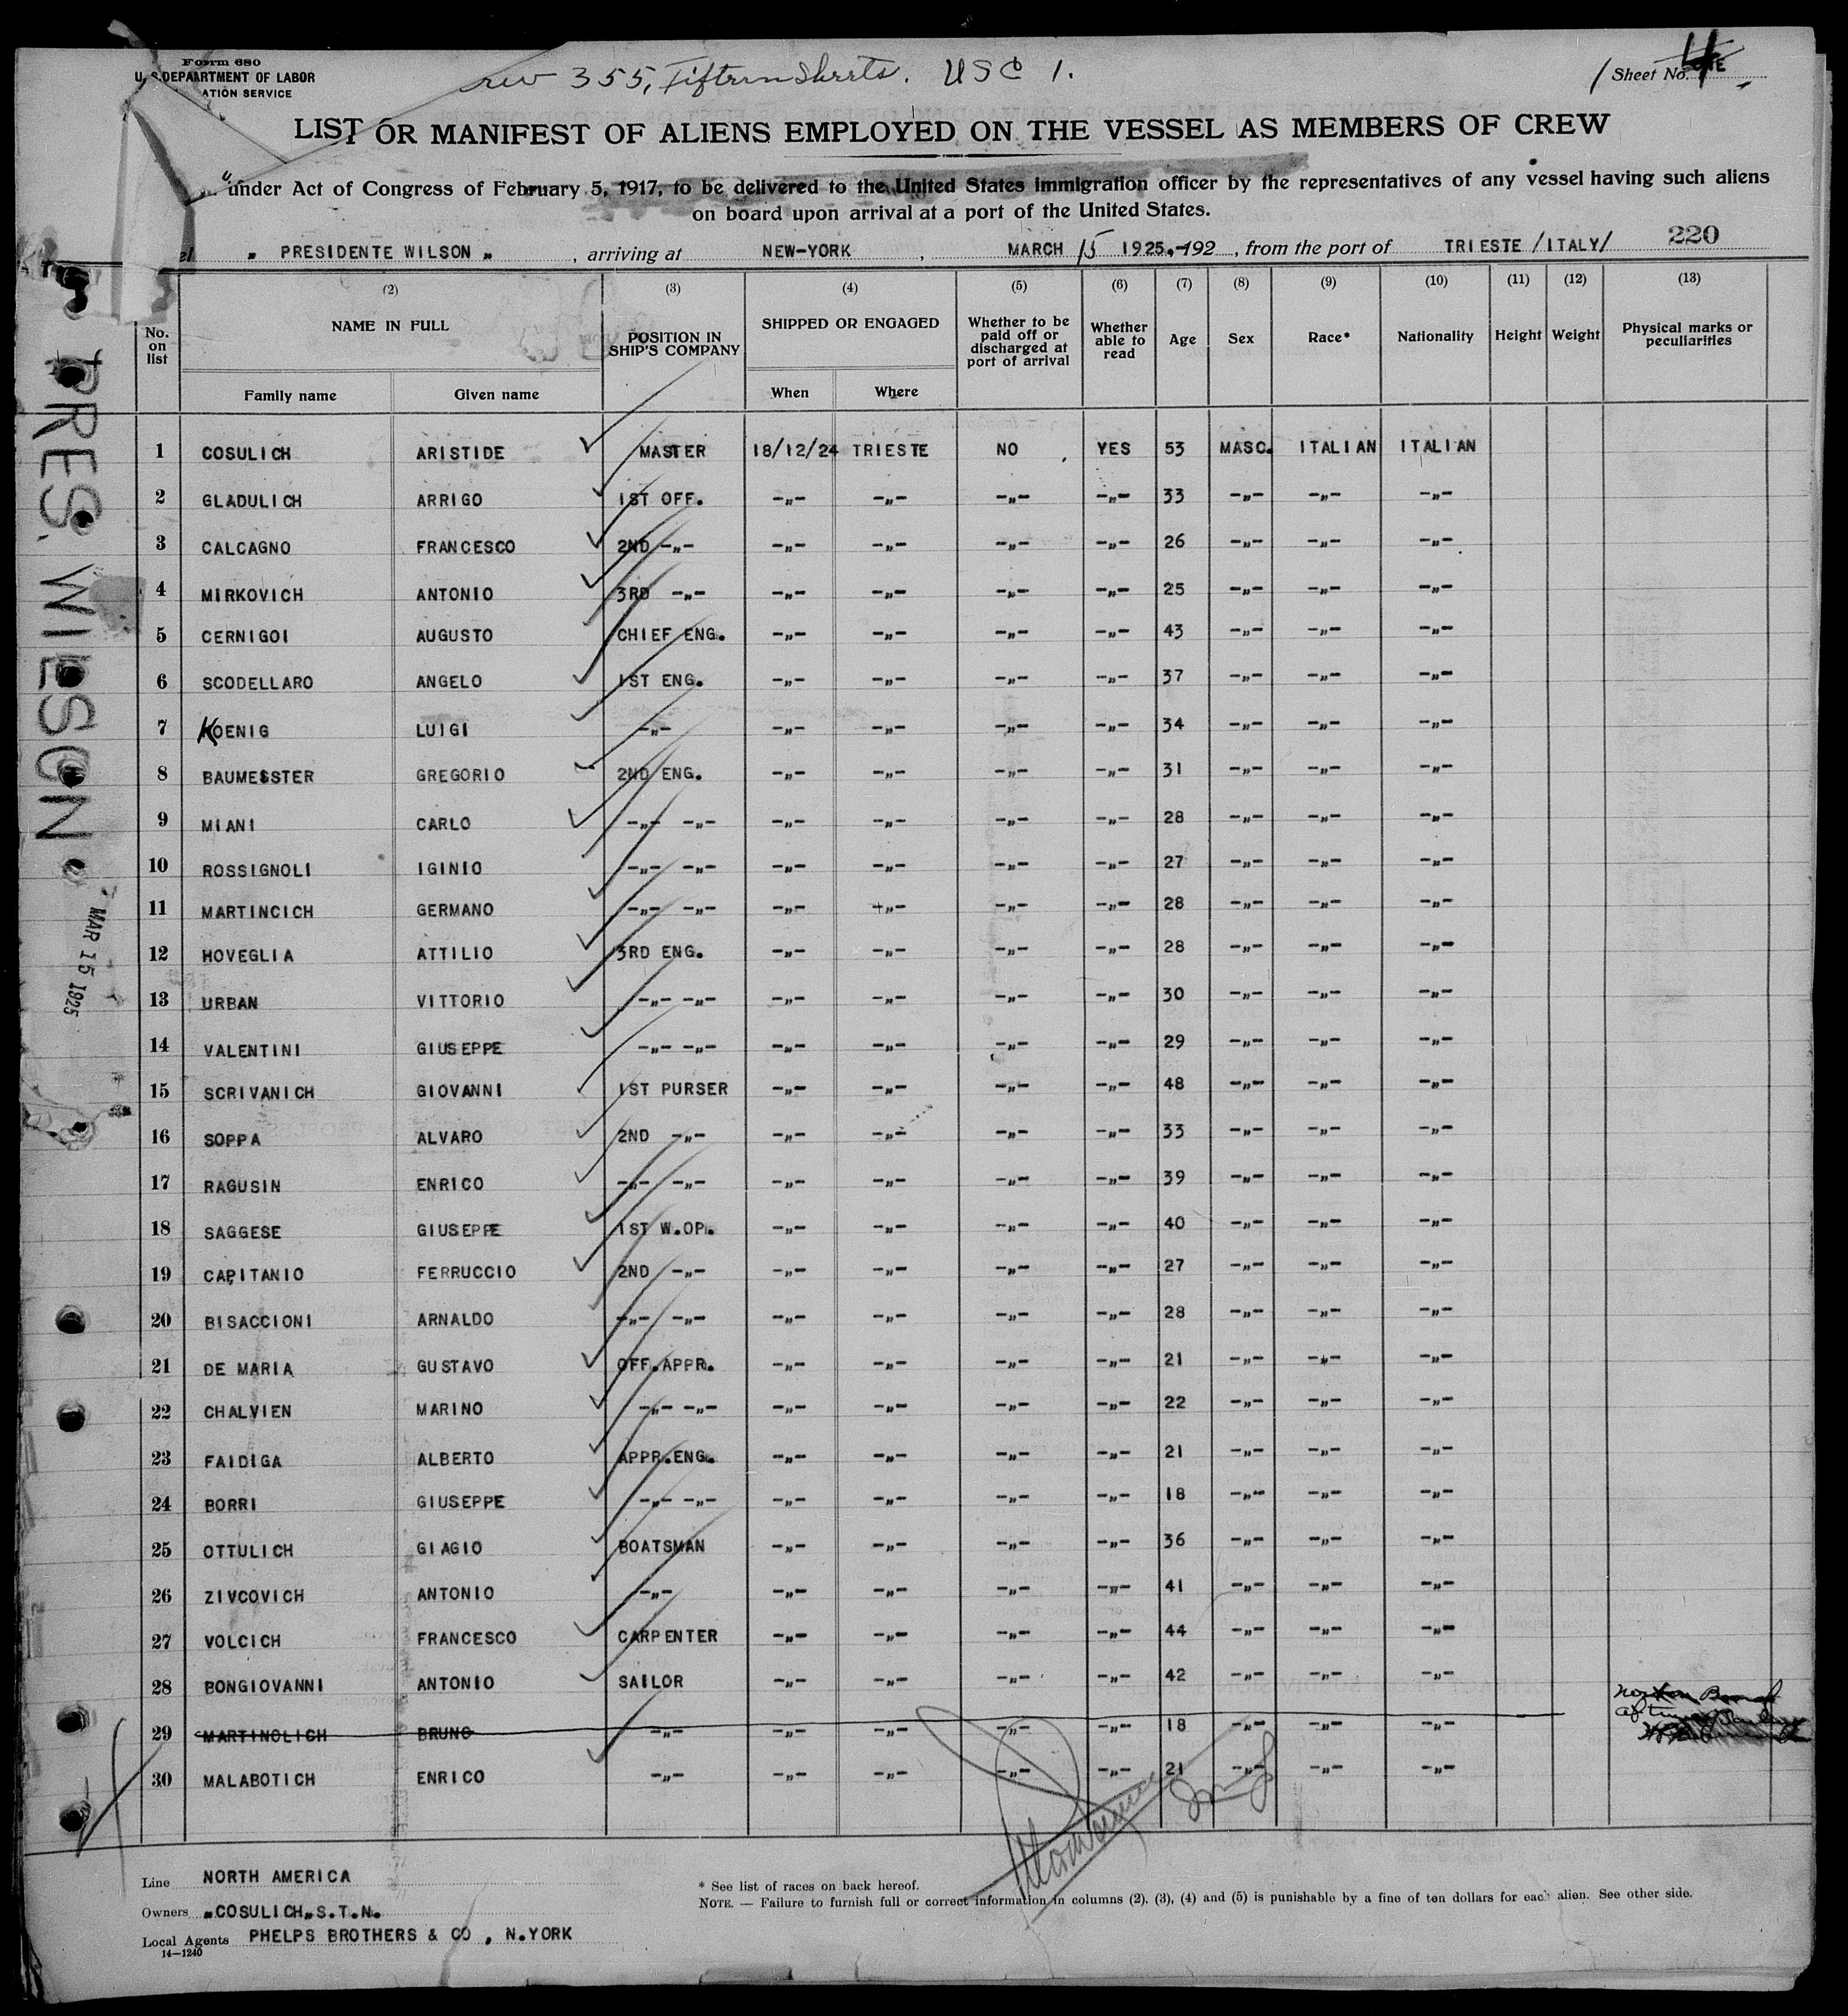 Form 680
U. S. DEPAARTMENT OF LABOR
ATION SERVICE
rew 355, Fifteen Sheets. USC 1.
Sheet No. 4
LIST OR MANIFEST OF ALIENS EMPLOYED ON THE VESSEL AS MEMBERS OF CREW
under Act of Congress of February 5, 1917, to be delivered to the United States immigration officer by the representatives of any vessel having such aliens
on board upon arrival at a port of the United States.
el „ PRESIDENTE WILSON „ , arriving at NEW-YORK , MARCH 15 1925.-192 , from the port of TRIESTE /ITALY/ 220
(2) (3) (4) (5) (6) (7) (8) (9) (10) (11) (12) (13)
No. on list NAME IN FULL POSITION IN SHIP'S COMPANY SHIPPED OR ENGAGED Whether to be paid off or discharged at port of arrival Whether able to read Age Sex Race* Nationality Height Weight Physical marks or peculiarities
Family name Given name When Where
1 COSULICH ARISTIDE MASTER 18/12/24 TRIESTE NO YES 53 MASC. ITALIAN ITALIAN
2 GLADULICH ARRIGO 1ST OFF. -„- -„- -„- -„- 33 -„- -„- -„-
3 CALCAGNO FRANCESCO 2ND -„- -„- -„- -„- -„- 26 -„- -„- -„-
4 MIRKOVICH ANTONIO 3RD -„- -„- -„- -„- -„- 25 -„- -„- -„-
5 CERNIGOI AUGUSTO CHIEF ENG. -„- -„- -„- -„- 43 -„- -„- -„-
6 SCODELLARO ANGELO 1ST ENG. -„- -„- -„- -„- 37 -„- -„- -„-
7 KOENIG LUIGI -„- -„- -„- -„- -„- 34 -„- -„- -„-
8 BAUMESSTER GREGORIO 2ND ENG. -„- -„- -„- -„- 31 -„- -„- -„-
9 MIANI CARLO -„- -„- -„- -„- -„- -„- 28 -„- -„- -„-
10 ROSSIGNOLI IGINIO -„- -„- -„- -„- -„- -„- 27 -„- -„- -„-
11 MARTINCICH GERMANO -„- -„- -„- -„- -„- -„- 28 -„- -„- -„-
12 HOVEGLIA ATTILIO 3RD ENG. -„- -„- -„- -„- 28 -„- -„- -„-
13 URBAN VITTORIO -„- -„- -„- -„- -„- -„- 30 -„- -„- -„-
14 VALENTINI GIUSEPPE -„- -„- -„- -„- -„- -„- 29 -„- -„- -„-
15 SCRIVANICH GIOVANNI 1ST PURSER -„- -„- -„- -„- 48 -„- -„- -„-
16 SOPPA ALVARO 2ND -„- -„- -„- -„- -„- 33 -„- -„- -„-
17 RAGUSIN ENRICO -„- -„- -„- -„- -„- -„- 39 -„- -„- -„-
18 SAGGESE GIUSEPPE 1ST W.OP. -„- -„- -„- -„- 40 -„- -„- -„-
19 CAPITANIO FERRUCCIO 2ND -„- -„- -„- -„- -„- 27 -„- -„- -„-
20 BISACCIONI ARNALDO -„- -„- -„- -„- -„- -„- 28 -„- -„- -„-
21 DE MARIA GUSTAVO OFF.APPR. -„- -„- -„- -„- 21 -„- -„- -„-
22 CHALVIEN MARINO -„- -„- -„- -„- -„- -„- 22 -„- -„- -„-
23 FAIDIGA ALBERTO APPR.ENG. -„- -„- -„- -„- 21 -„- -„- -„-
24 BORRI GIUSEPPE -„- -„- -„- -„- -„- -„- 18 -„- -„- -„-
25 OTTULICH GIAGIO BOATSMAN -„- -„- -„- -„- 36 -„- -„- -„-
26 ZIVCOVICH ANTONIO -„- -„- -„- -„- -„- 41 -„- -„- -„-
27 VOLCICH FRANCESCO CARPENTER -„- -„- -„- -„- 44 -„- -„- -„-
28 BONGIOVANNI ANTONIO SAILOR -„- -„- -„- -„- 42 -„- -„- -„-
29 MARTINOLICH BRUNO -„- -„- -„- -„- -„- 18 -„- -„- -„-
30 MALABOTICH ENRICO -„- -„- -„- -„- -„- 21 -„- -„- -„-
PRES. WILSON
MAR 15 1925
Line NORTH AMERICA
Owners „COSULICH„S.T.N.
Local Agents PHELPS BROTHERS & CO , N.YORK
14-1240
* See list of races on back hereof.
NOTE. — Failure to furnish full or correct information in columns (2), (3), (4) and (5) is punishable by a fine of ten dollars for each alien. See other side.